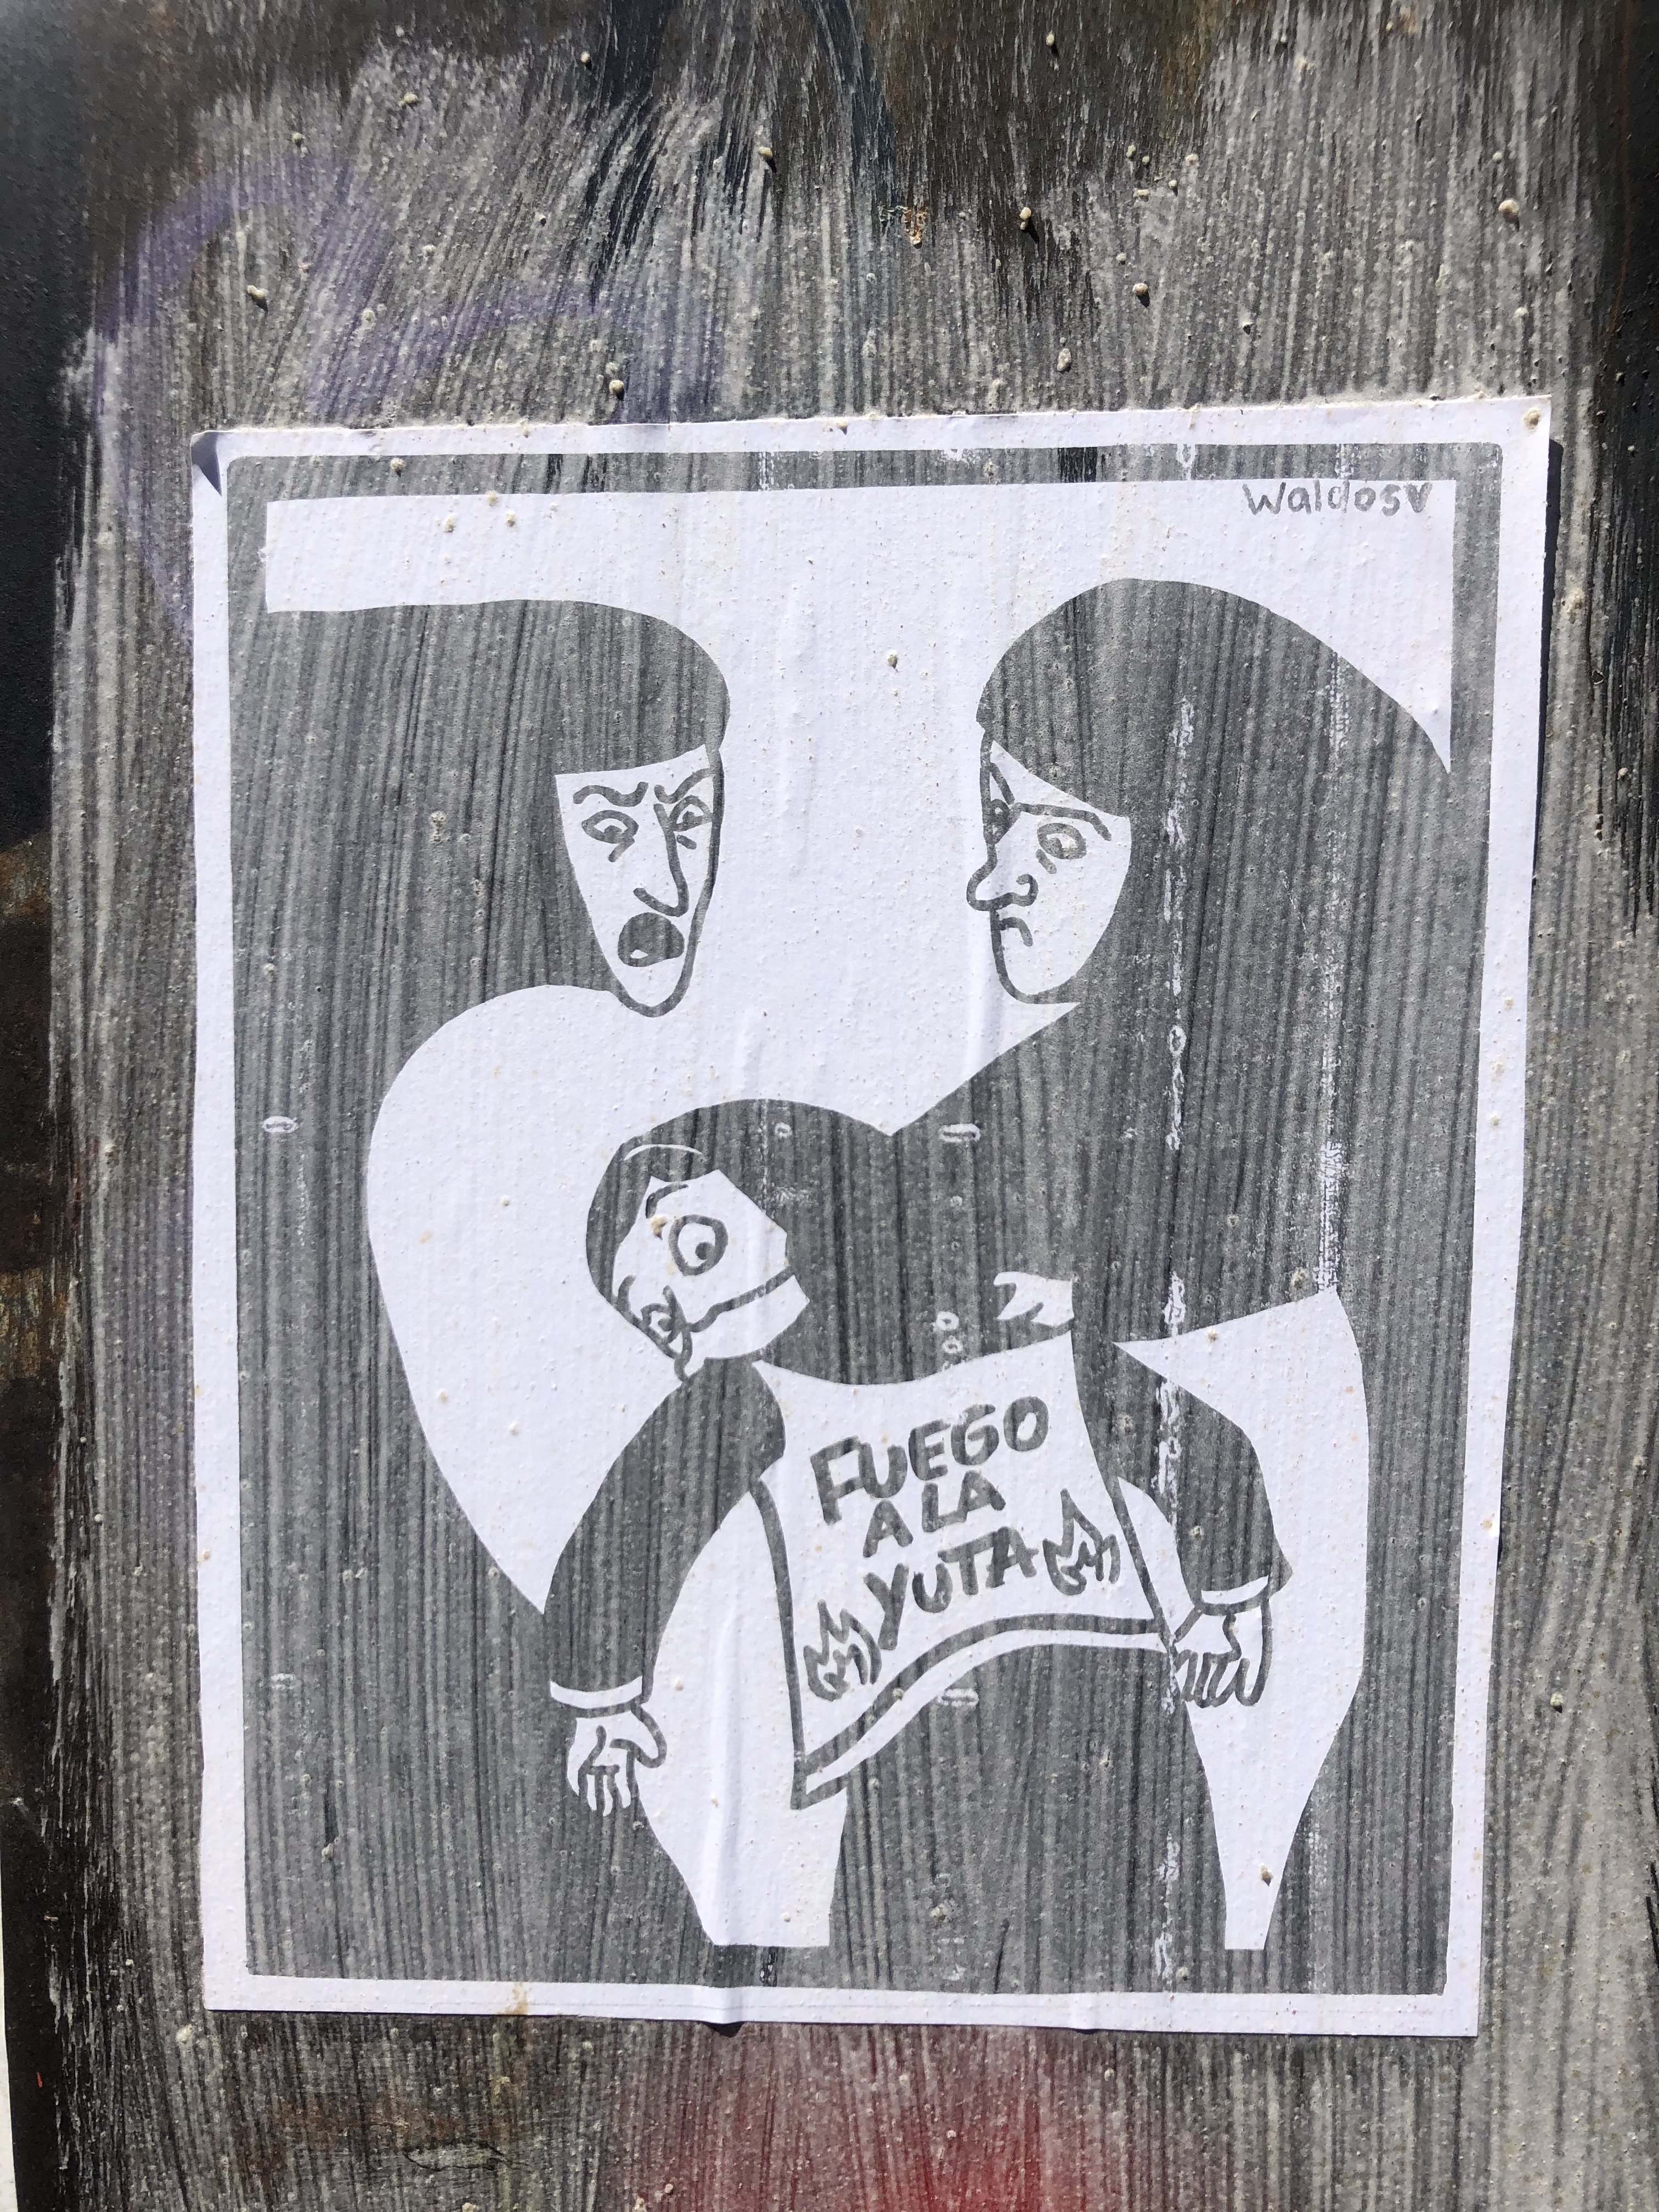 Waldos♥
FUEGO
A LA
YUTA